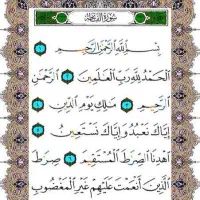 سُورَةُ الفَاتِحَةِ
بِسْمِ ٱللَّهِ ٱلرَّحْمَٰنِ ٱلرَّحِيمِ ١
ٱلْحَمْدُ لِلَّهِ رَبِّ ٱلْعَٰلَمِينَ ٢ ٱلرَّحْمَٰنِ
ٱلرَّحِيمِ ٣ مَٰلِكِ يَوْمِ ٱلدِّينِ ٤
إِيَّاكَ نَعْبُدُ وَإِيَّاكَ نَسْتَعِينُ ٥
ٱهْدِنَا ٱلصِّرَٰطَ ٱلْمُسْتَقِيمَ ٦ صِرَٰطَ
ٱلَّذِينَ أَنْعَمْتَ عَلَيْهِمْ غَيْرِ ٱلْمَغْضُوبِ